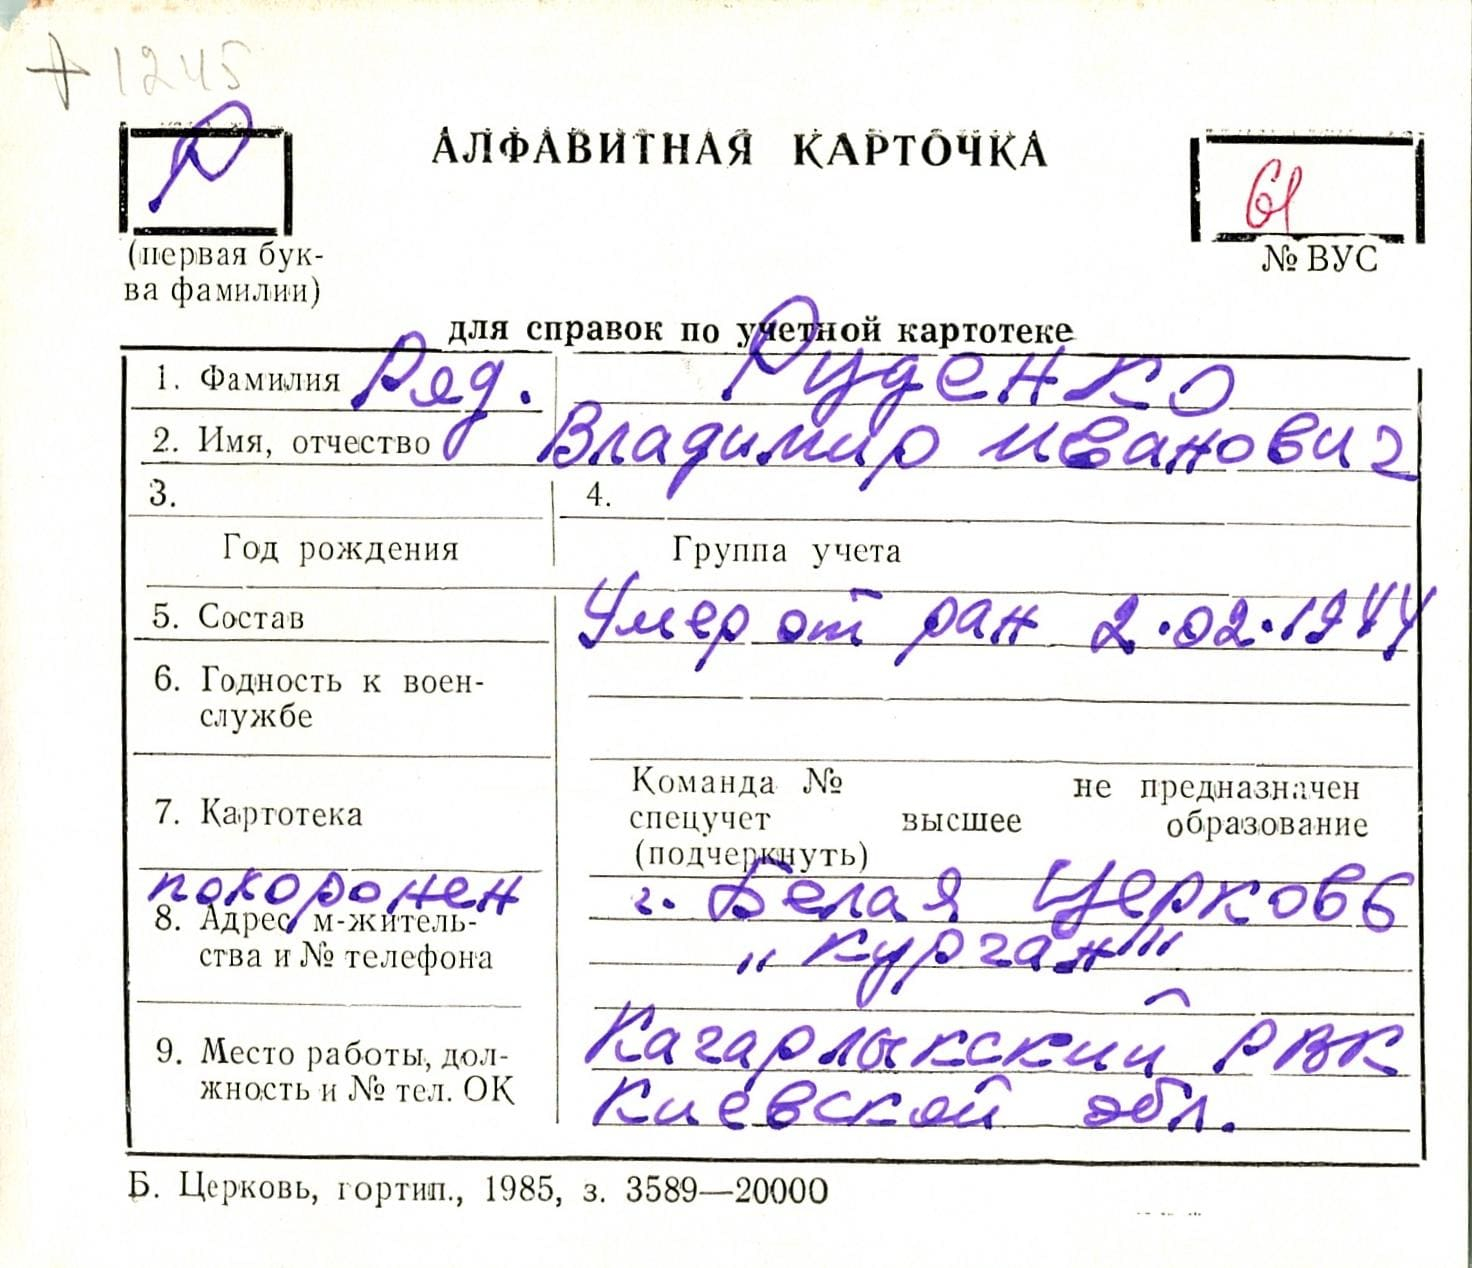 + 1245
Р
АЛФАВИТНАЯ КАРТОЧКА
61
(первая бук-
ва фамилии)
№ ВУС
для справок по учетной картотеке
1. Фамилия Ряд. Руденко
2. Имя, отчество Владимир Иванович
3. 4.
Год рождения Группа учета
5. Состав Умер от ран 2.02.1944
6. Годность к воен-
службе
7. Картотека
Команда № не предназначен
спецучет высшее образование
(подчеркнуть)
похоронен г. Белая Церковь
8. Адрес м-житель-
ства и № телефона
„Курган"
9. Место работы, дол-
жность и № тел. ОК
Кагарлыкский РВК
Киевской обл.
Б. Церковь, гортип., 1985, з. 3589—20000